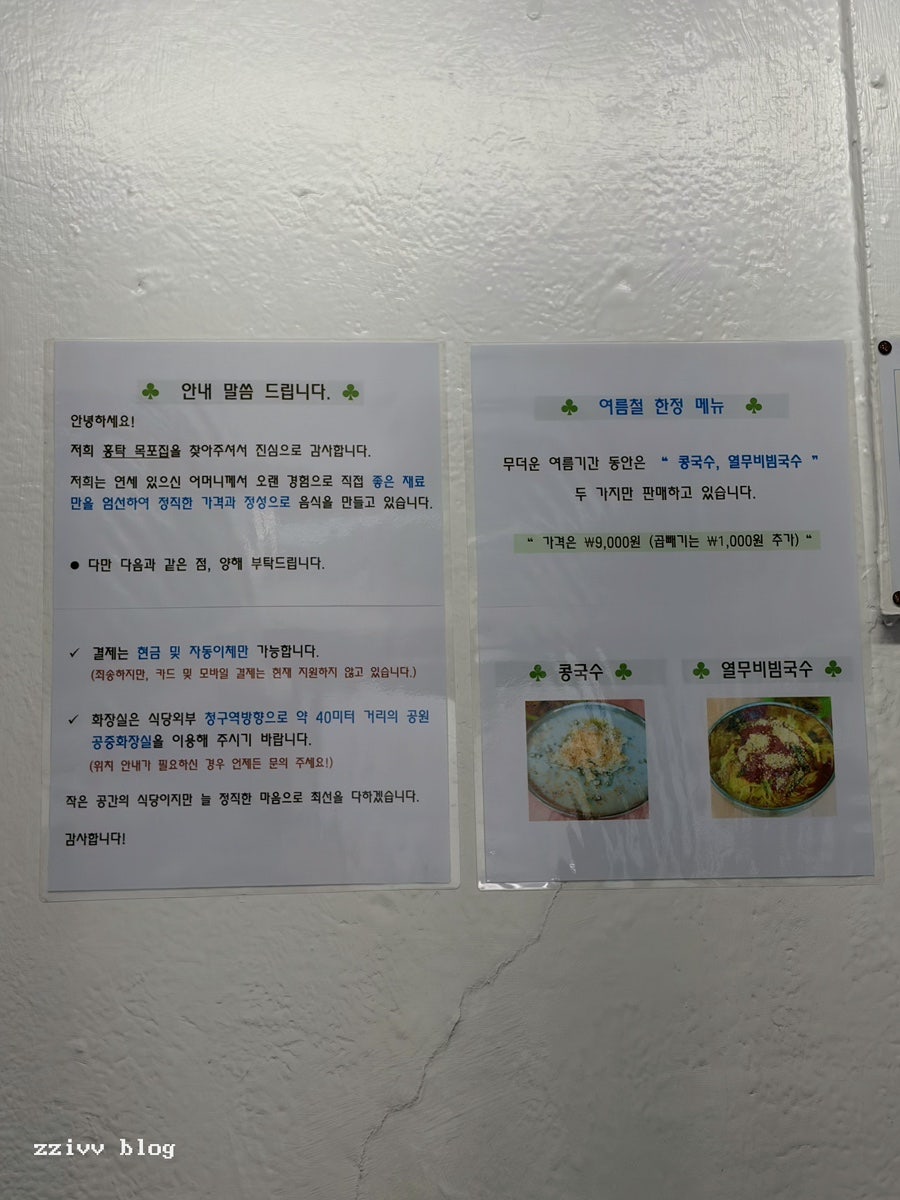 ♣ 안내 말씀 드립니다. ♣
안녕하세요!
저희 홍탁 목포집을 찾아주셔서 진심으로 감사합니다.
저희는 연세 있으신 어머니께서 오랜 경험으로 직접 좋은 재료
만을 엄선하여 정직한 가격과 정성으로 음식을 만들고 있습니다.
● 다만 다음과 같은 점, 양해 부탁드립니다.
✓ 결제는 현금 및 자동이체만 가능합니다.
(죄송하지만, 카드 및 모바일 결제는 현재 지원하지 않고 있습니다.)
✓ 화장실은 식당외부 청구역방향으로 약 40미터 거리의 공원
공중화장실을 이용해 주시기 바랍니다.
(위치 안내가 필요하신 경우 언제든 문의 주세요!)
작은 공간의 식당이지만 늘 정직한 마음으로 최선을 다하겠습니다.
감사합니다!
♣ 여름철 한정 메뉴 ♣
무더운 여름기간 동안은 “ 콩국수, 열무비빔국수 ”
두 가지만 판매하고 있습니다.
“ 가격은 ₩9,000원 (곱빼기는 ₩1,000원 추가) “
♣ 콩국수 ♣
♣ 열무비빔국수 ♣
zzivv blog